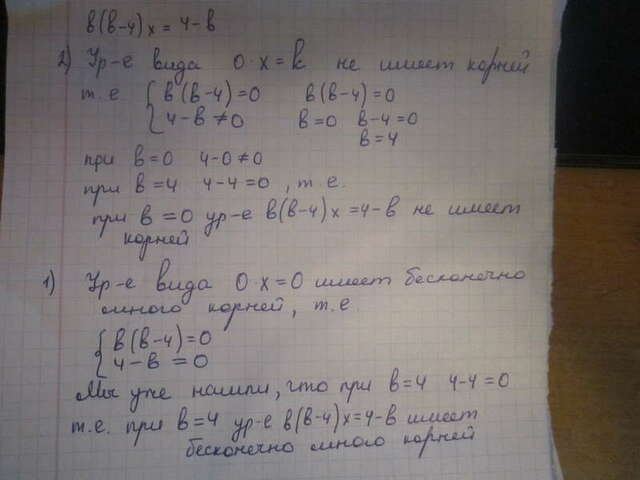 в(в-4)x = 4-в
2) Ур-е вида 0·x=k не имеет корней
т.е { в(в-4)=0 в(в-4)=0
4-в ≠0 в=0 в-4=0
в=4
при в=0 4-0≠0
при в=4 4-4=0, т.е.
при в=0 ур-е в(в-4)x=4-в не имеет
корней
1) Ур-е вида 0·x=0 имеет бесконечно
много корней, т.е.
{ в(в-4)=0
4-в =0
Мы уже нашли, что при в=4 4-4=0
т.е. при в=4 ур-е в(в-4)x=4-в имеет
бесконечно много корней